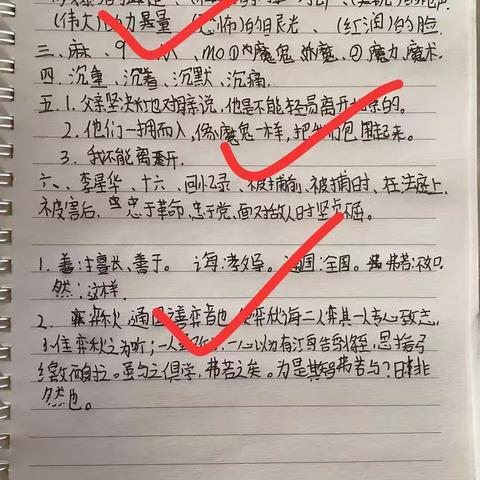 (伟大)的力量 (恐怖)的目光、(红润)的脸
三、麻、9 mo ①内魔鬼 妖魔、②魔力、魔术
四、沉重、沉着、沉默、沉痛。
五、1.父亲坚决地对母亲说,他是不能轻易离开北京的。
2.他们一拥而入,像魔鬼一样,把我们包围起来。
3.我不能离开。
六、李星华、十六、回忆录、被捕前、被捕时、在法庭上、
被害后、忠于革命,忠于党,面对敌人时坚贞不屈。
1.善:擅长、善于。 诲:教导。 通国:全国。 弗若:不如
然:这样
2.弈秋,通国之善弈者也 使弈秋诲二人弈其一人专心致志,
惟弈秋之为听;一人虽听之,一心以为有鸿鹄将至,思援弓
缴而射之。虽与之俱学,弗若之矣。为是其智弗若与?曰:非
然也。